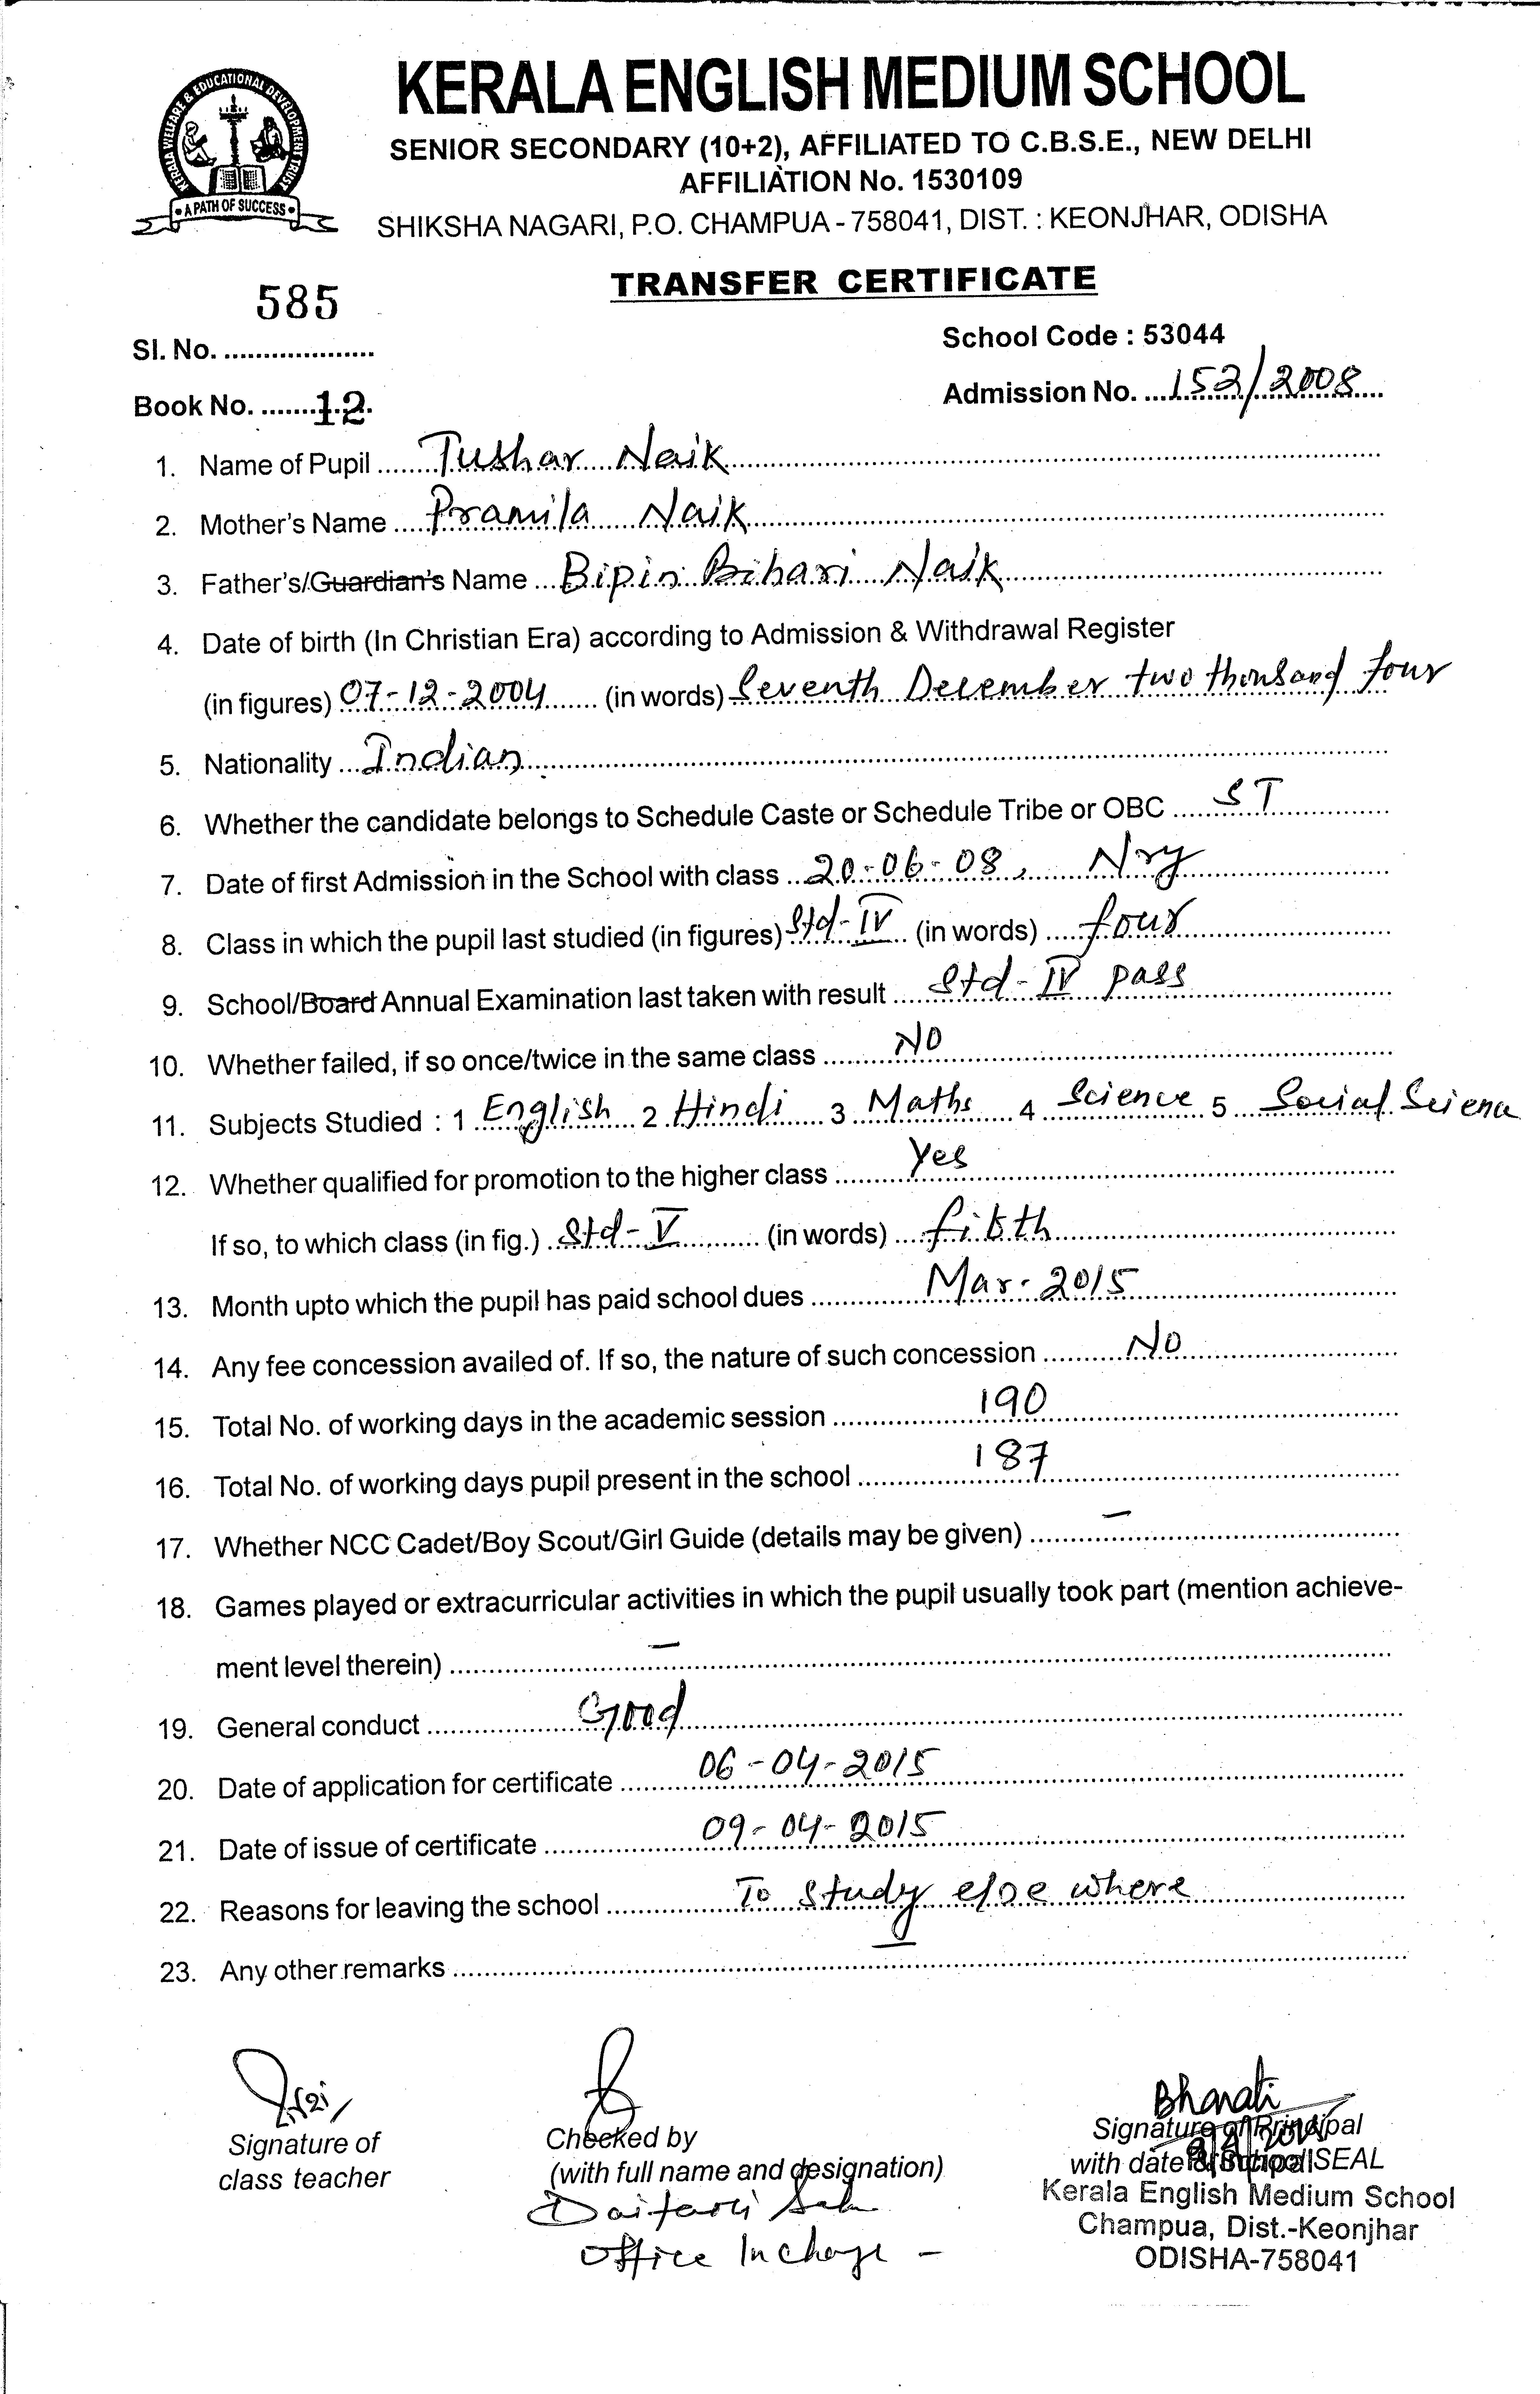 KERALA WELFARE & EDUCATIONAL DEVELOPMENT TRUST
• A PATH OF SUCCESS •
KERALA ENGLISH MEDIUM SCHOOL
SENIOR SECONDARY (10+2), AFFILIATED TO C.B.S.E., NEW DELHI
AFFILIATION No. 1530109
SHIKSHA NAGARI, P.O. CHAMPUA - 758041, DIST. : KEONJHAR, ODISHA
TRANSFER CERTIFICATE
585
Sl. No. ....................
School Code : 53044
Book No. .......12.
Admission No. ...152/2008...
1. Name of Pupil ...... Tushar Naik
2. Mother's Name .... Pramila Naik
3. Father's/Guardian's Name ... Bipin Bihari Naik
4. Date of birth (In Christian Era) according to Admission & Withdrawal Register
(in figures) 07-12-2004 ....... (in words) Seventh December two thousand four
5. Nationality ... Indian
6. Whether the candidate belongs to Schedule Caste or Schedule Tribe or OBC ..... ST
7. Date of first Admission in the School with class .. 20-06-08, Nry
8. Class in which the pupil last studied (in figures) Std-IV .. (in words) .... four
9. School/Board Annual Examination last taken with result .... Std-IV pass
10. Whether failed, if so once/twice in the same class ........ NO
11. Subjects Studied : 1 English 2 Hindi 3 Maths 4 Science 5 Social Scienc
12. Whether qualified for promotion to the higher class ......... Yes
If so, to which class (in fig.) . Std-V ......... (in words) .... fibth
13. Month upto which the pupil has paid school dues ............ Mar-2015
14. Any fee concession availed of. If so, the nature of such concession ......... No
15. Total No. of working days in the academic session .............. 190
16. Total No. of working days pupil present in the school ............ 187
17. Whether NCC Cadet/Boy Scout/Girl Guide (details may be given) ........ —
18. Games played or extracurricular activities in which the pupil usually took part (mention achieve-
ment level therein) ................ —
19. General conduct ............... Good
20. Date of application for certificate ......... 06-04-2015
21. Date of issue of certificate ............... 09-04-2015
22. Reasons for leaving the school ............ To study else where
23. Any other remarks ............... —
Bharati
Signature of
class teacher
Checked by
(with full name and designation)
Office Incharge -
Signature of Principal
with date & School SEAL
Principal
Kerala English Medium School
Champua, Dist.-Keonjhar
ODISHA-758041